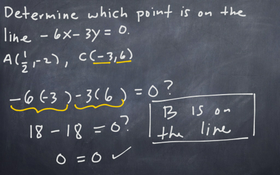 Determine which point is on the
line -6x-3y=0.
A(1/2,-2), C(-3,6)
-6(-3)-3(6)=0?
18-18=0?
0=0 ✓
B is on
the line